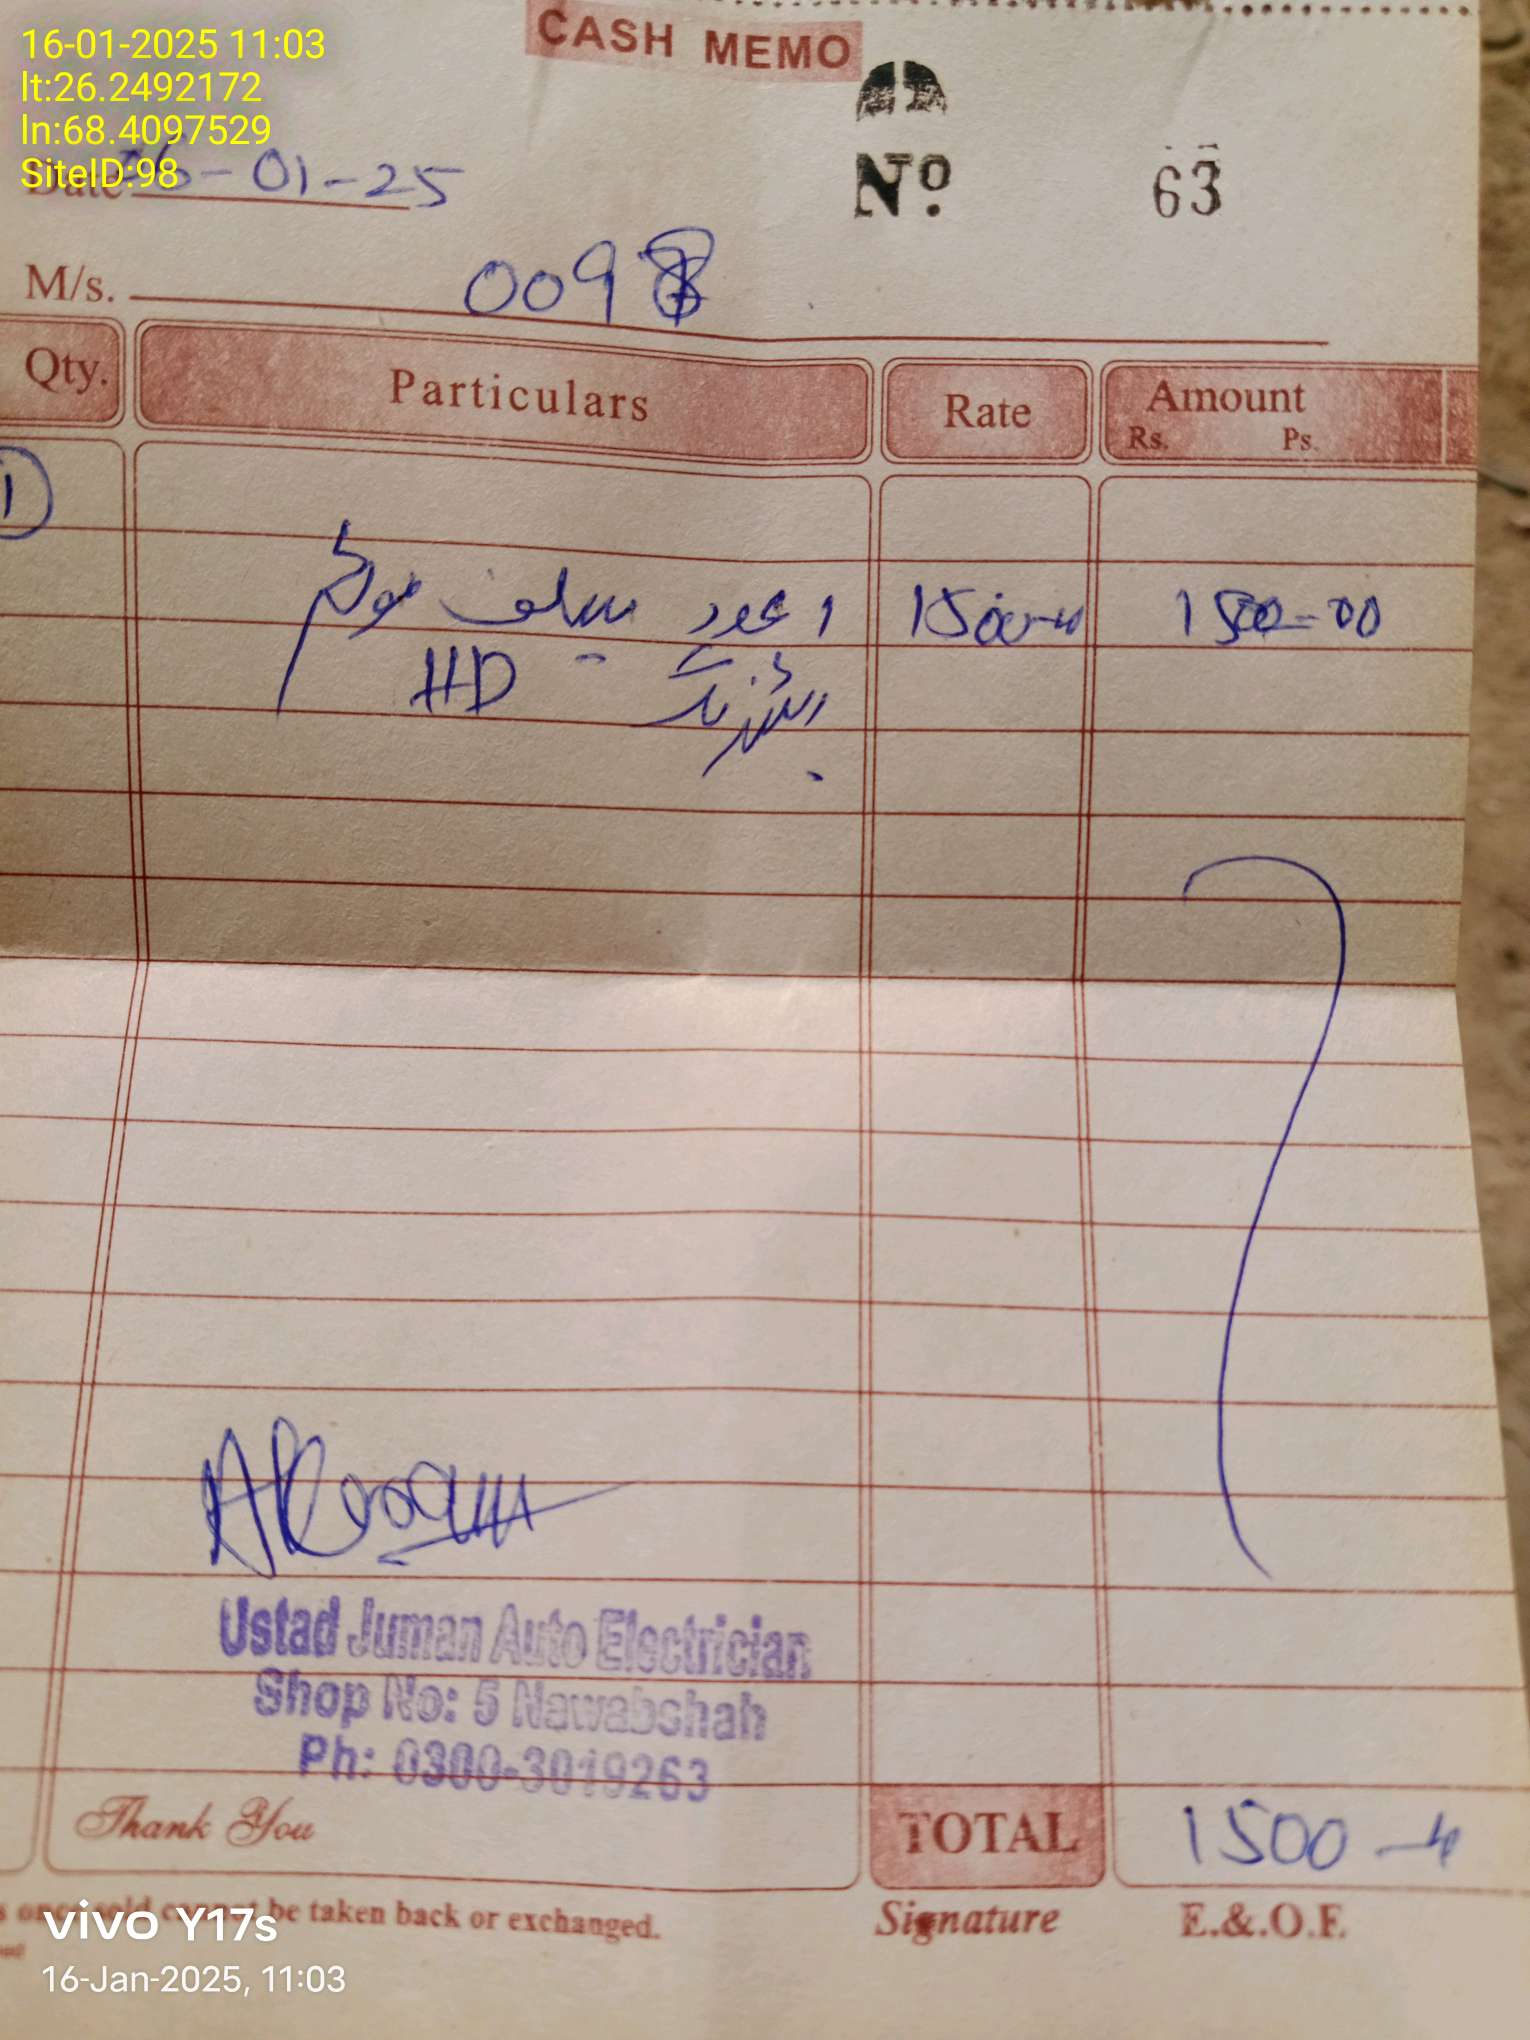 CASH MEMO
16-01-2025 11:03
lt:26.2492172
ln:68.4097529
SiteID:98
Date 16-01-25
Nº 63
M/s. 0098
Qty. Particulars Rate Amount
Rs. Ps.
1
1 عدد سیلف 1500 1500-00
HD
Ustad Juman Auto Electrician
Shop No: 5 Nawabshah
Ph: 0300-3019263
Thank You
TOTAL 1500
be taken back or exchanged.
Signature E.&.O.F.
vivo Y17s
16-Jan-2025, 11:03